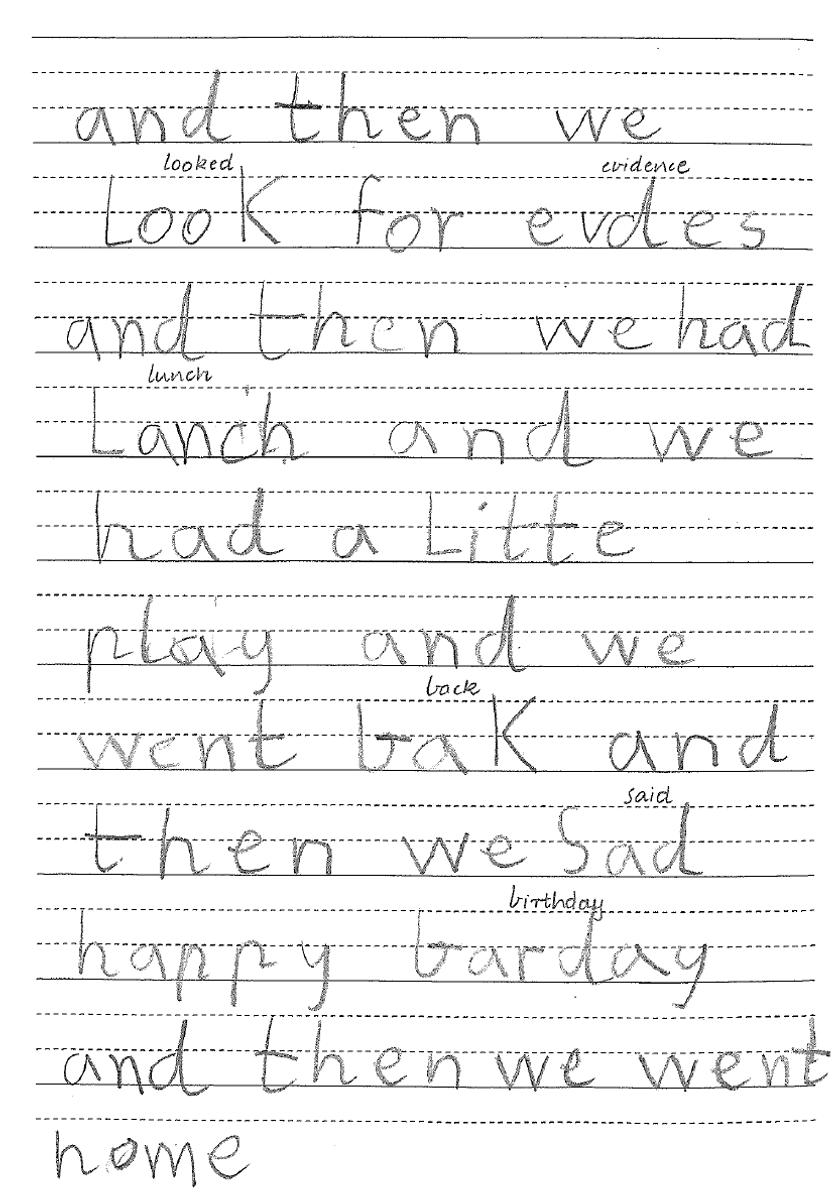 and then we
looked evidence
Look for evdes
and then we had
lunch
Lanch and we
had a Litte
play and we
back
went bak and
said
then we Sad
birthday
happy barday
and then we went
home